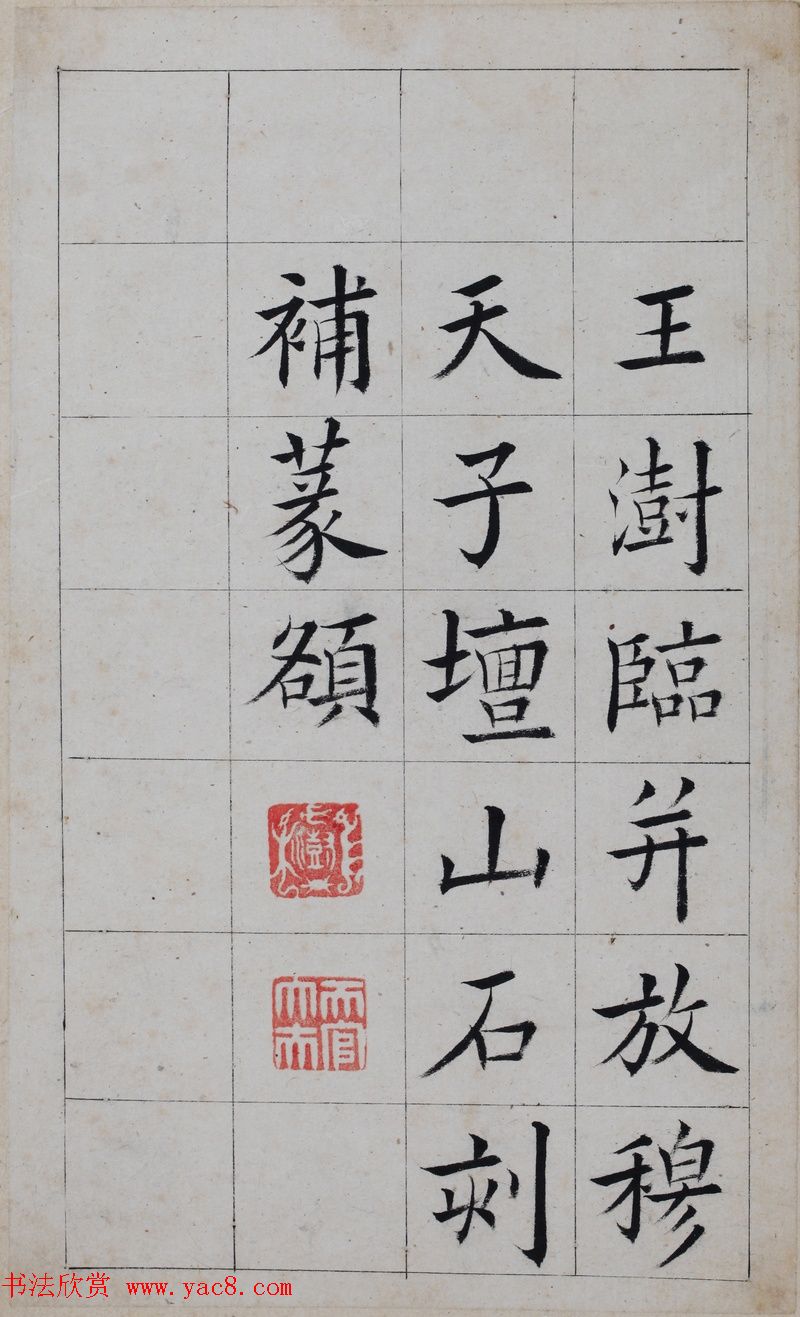 王澍臨并放穆
天子壇山石刻
補篆額
书法欣赏 www.yac8.com